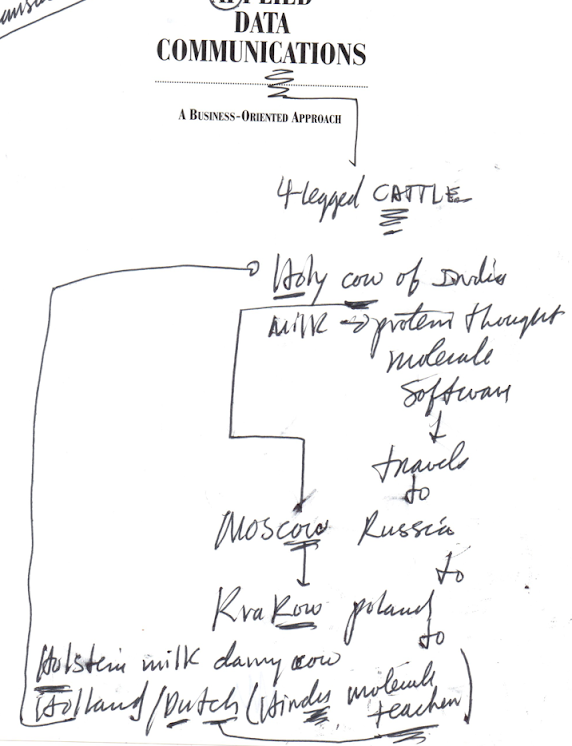 APPLIED
DATA
COMMUNICATIONS
A BUSINESS-ORIENTED APPROACH
4-legged CATTLE
Holy cow of India
milk → protein thought
molecule
software
travels
to
Moscow Russia
to
Krakow poland
to
Holstein milk dairy cow
Holland/Dutch (Hindu molecule
teacher)